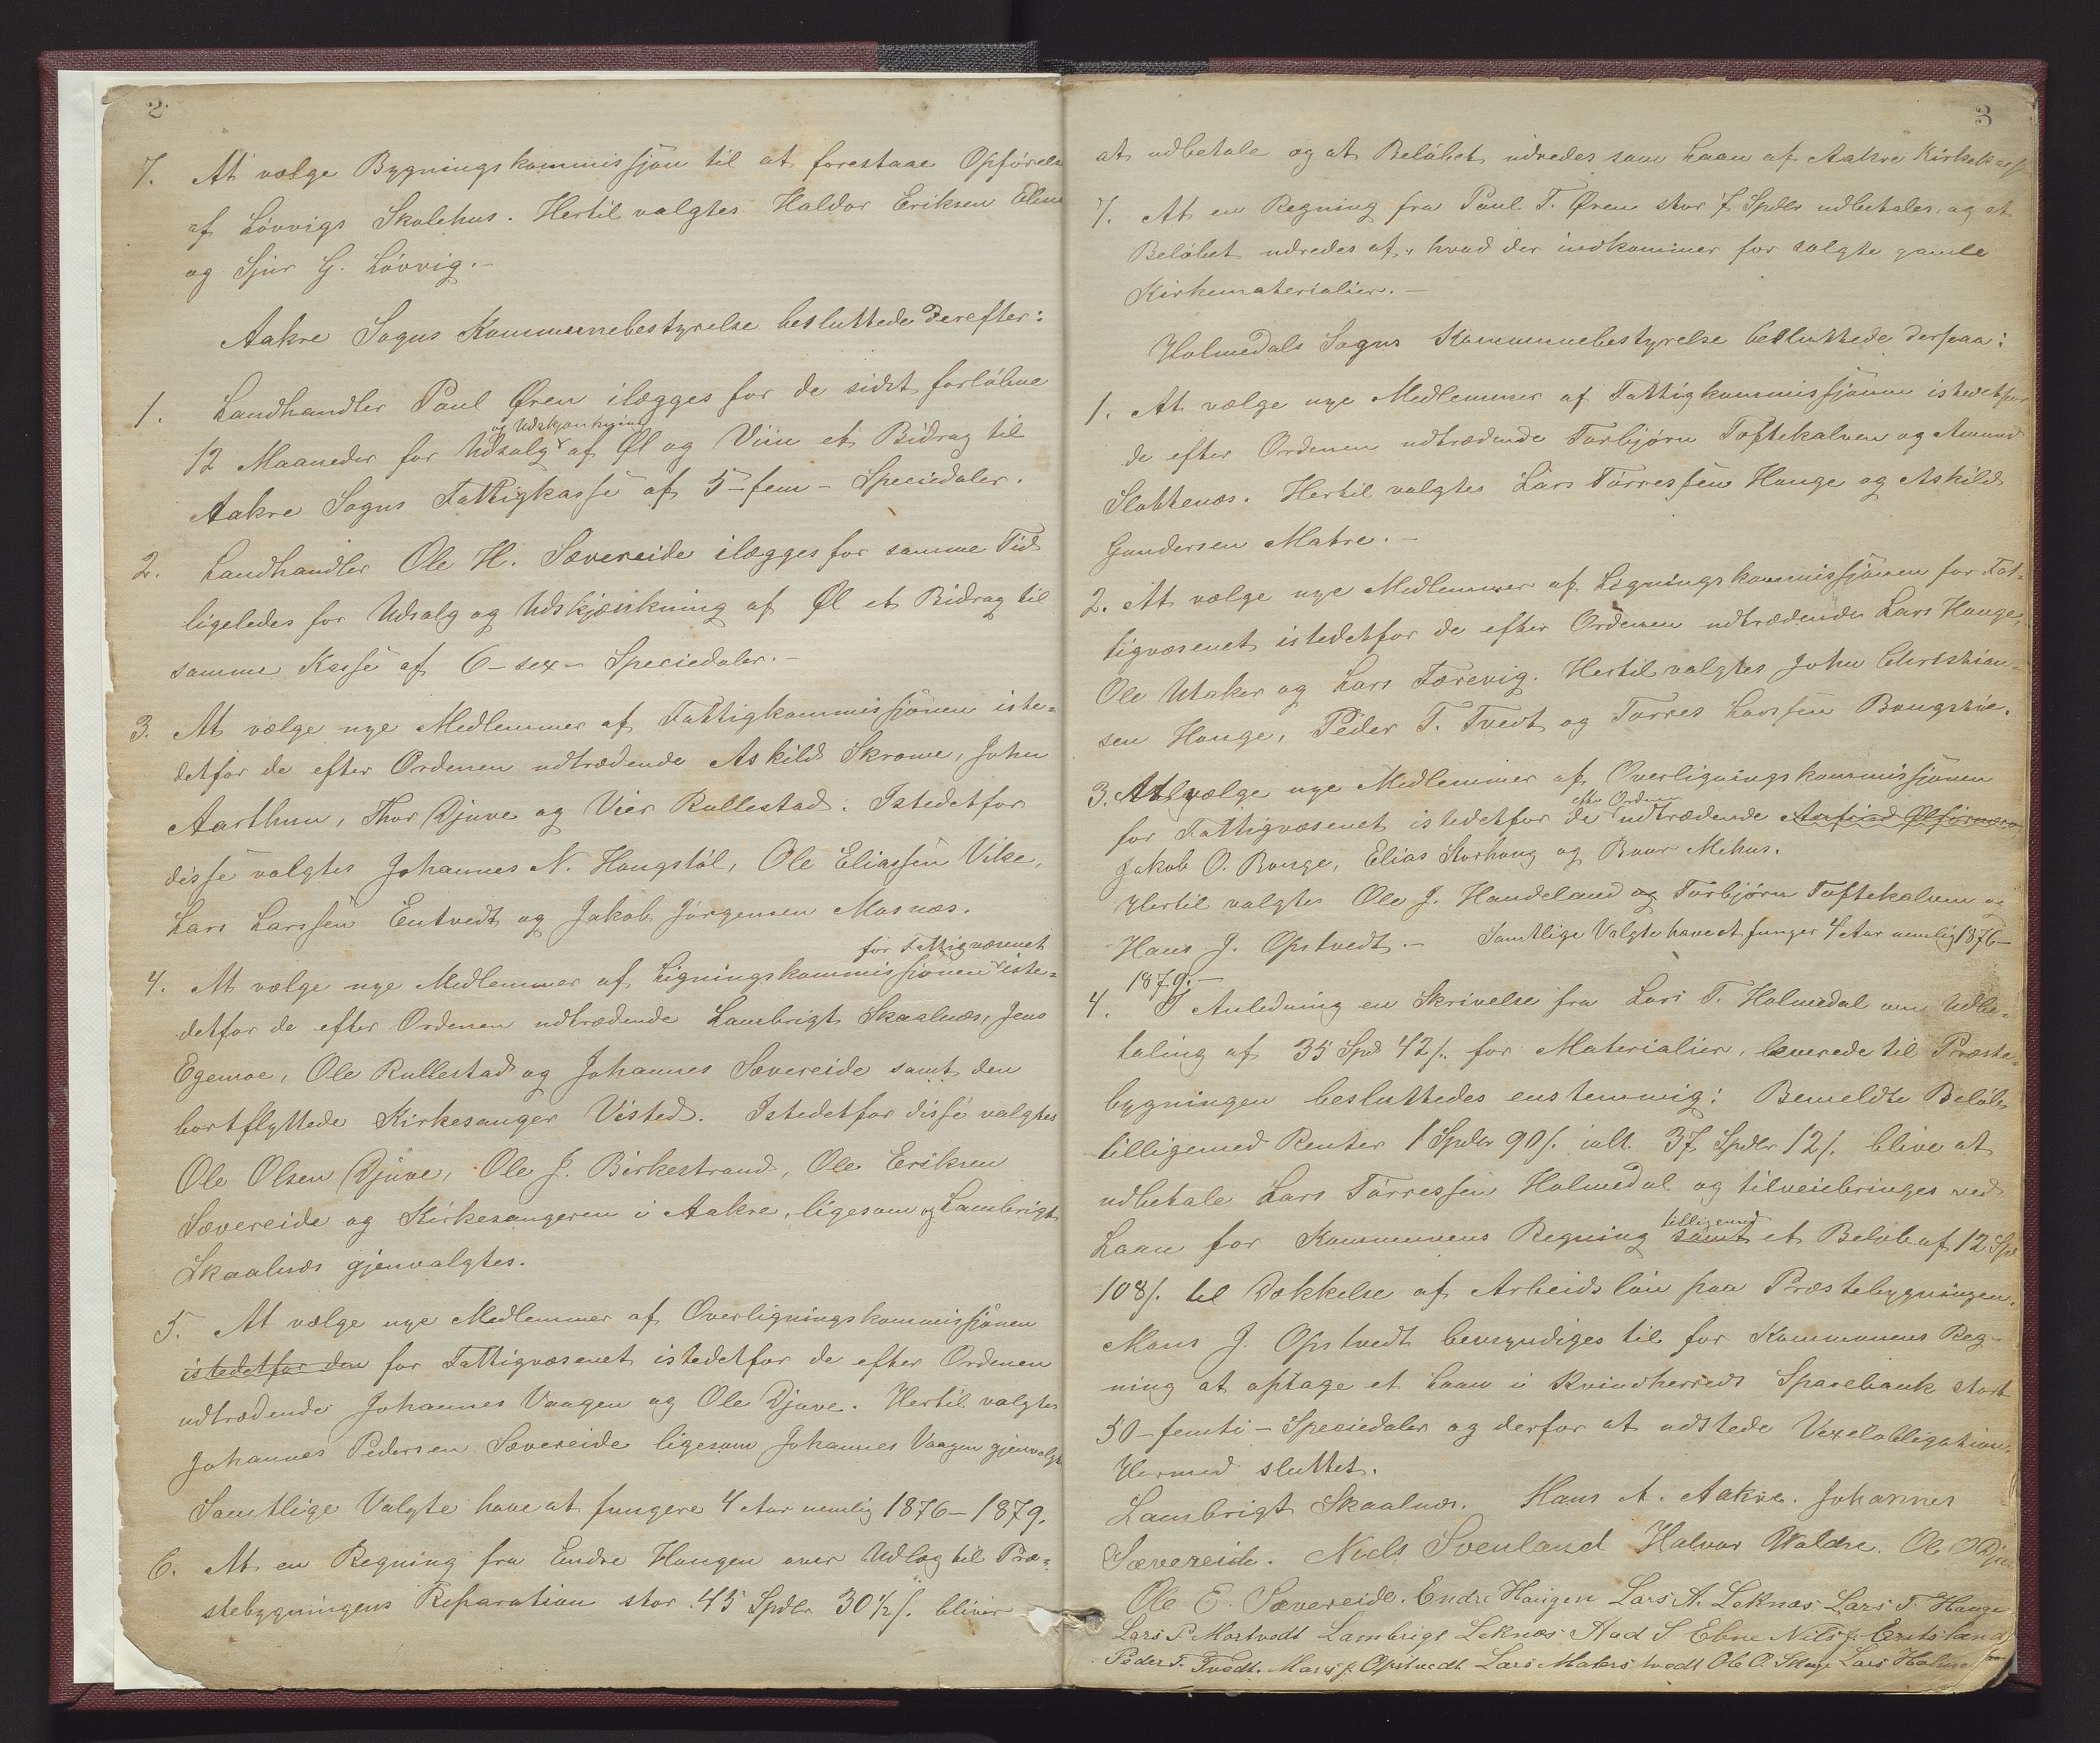 2
7. At vælge Bygningskommissjon til at forestaae Opførelse
af Løvvigs Skolehus. Hertil valgtes Haldor Eriksen Ebne
og Sjur G. Løvvig.-
Aakre Sogns Kommunebestyrelse besluttede derefter:
1. Landhandler Paul Øren ilægges for de sidst forløbne
og Udskjænkning
12 Maaneder for Udsalg af Øl og Viin et Bidrag til
Aakre Sogns Fattigkasse af 5-fem- Speciedaler.
2. Landhandler Ole H. Sævereide ilægges for samme Tid
ligeledes for Udsalg og Udskjænkning af Øl et Bidrag til
samme Kasse af 6-sex- Speciedaler.-
3. At vælge nye Medlemmer af Fattigkommissjonen iste=
detfor de efter Ordenen udtrædende Askild Skromme, John
Aarthun, Thor Djuve og Vier Rullestad. Istedetfor
disse valgtes Johannes N. Hougstøl, Ole Eliassen Vike,
Lars Larssen Entvedt og Jakob Jørgensen Mosnæs.
for Fattigvæsenet
4. At vælge nye Medlemmer af Ligningskommissjonen iste=
detfor de efter Ordenen udtrædende Lambrigt Skaalnæs, Jens
Egemoe, Ole Rullestad og Johannes Sævereide samt den
bortflyttede Kirkesanger Visted. Istedetfor disse valgtes
Ole Olsen Djuve, Ole J. Birkestrand, Ole Eriksen
Sævereide og Kirkesangeren i Aakre, ligesom og Lambrigt
Skaalnæs gjenvalgtes.
5. At vælge nye Medlemmer af Overligningskommissjonen
istedetfor den for Fattigvæsenet istedetfor de efter Ordenen
udtrædende Johannes Vaagen og Ole Djuve. Hertil valgtes
Johannes Pedersen Sævereide ligesom Johannes Vaagen gjenvalgt
Samtlige Valgte have at fungere 4 Aar nemlig 1876-1879.
6. At en Regning fra Endre Haugen over Udlæg til Præ=
stebygningens Reparation stor 45 Spdlr 30½ s. bliver
3
at udbetale og at Beløbet udredes som Laan af Aakre Kirkekasse
7. At en Regning fra Paul T. Øren stor 7 Spdlr udbetales, og at
Beløbet udredes af, hvad der indkommer for solgte gamle
Kirkematerialier.-
Holmedals Sogns Kommunebestyrelse besluttede derpaa:
1. At vælge nye Medlemmer af Fattigkommissjonen istedetfor
de efter Ordenen udtrædende Torbjørn Toftekalven og Amund
Slottenæs. Hertil valgtes Lars Tørressen Hauge og Askild
Gundersen Matre.-
2. At vælge nye Medlemmer af Ligningskommissjonen for Fat=
tigvæsenet istedetfor de efter Ordenen udtrædende Lars Hauge,
Ole Utaker og Lars Færevig. Hertil valgtes John Christian=
sen Hauge, Peder T. Tvedt og Tørres Larssen
3. At vælge nye Medlemmer af Overligningskommissjonen
efter Ordenen
for Fattigvæsenet istedetfor de udtrædende Anfind
Jakob O. Bouge, Elias Storhoug og Baar Mehus.
Hertil valgtes Ole J. Handeland og Torbjørn Toftekalven og
Mons J. Opstvedt.- Samtlige Valgte have at funger 4 Aar nemlig 1876-
1879.-
4. I Anledning en Skrivelse fra Lars T. Holmedal om Udbe=
taling af 35 Spd 42 s. for Materialier, leverede til Præste=
bygningen besluttedes enstemmig: Bemeldte Beløb
tilligemed Renter 1 Spdlr 90 s. ialt 37 Spdlr 12 s. blive at
udbetale Lars Tørressen Holmedal og tilveiebringes ved
tilligemed
Laan for Kommunens Regning samt et Beløb af 12 Spd
108 s. til Dækkelse af Arbeidsløn paa Præstebygningen.
Mons J. Opstvedt bemyndiges til for Kommunens Reg=
ning at optage et Laan i Kvindherreds Sparebank stort
50-femti- Speciedaler og derfor at udstede Vexelobligation.
Hermed sluttet.
Lambrigt Skaalnæs. Hans A. Aakre. Johannes
Sævereide. Niels Svenland Halvor Waldre. Ole O Djuve
Ole E. Sævereide. Endre Haugen Lars A. Leknæs Lars T. Hauge
Lars P Mortvedt Lambrigt Leknæs Aad S Ebne Nils J. Eritsland
Peder T. Tvedt. Mons J. Opstvedt Lars Materstvedt Ole O. Lars